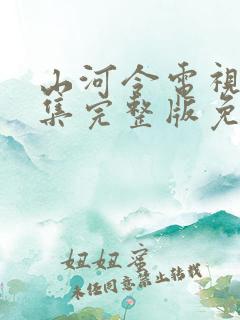 山河令電視
集完整版免
妞妞蜜
未经同意禁止转载